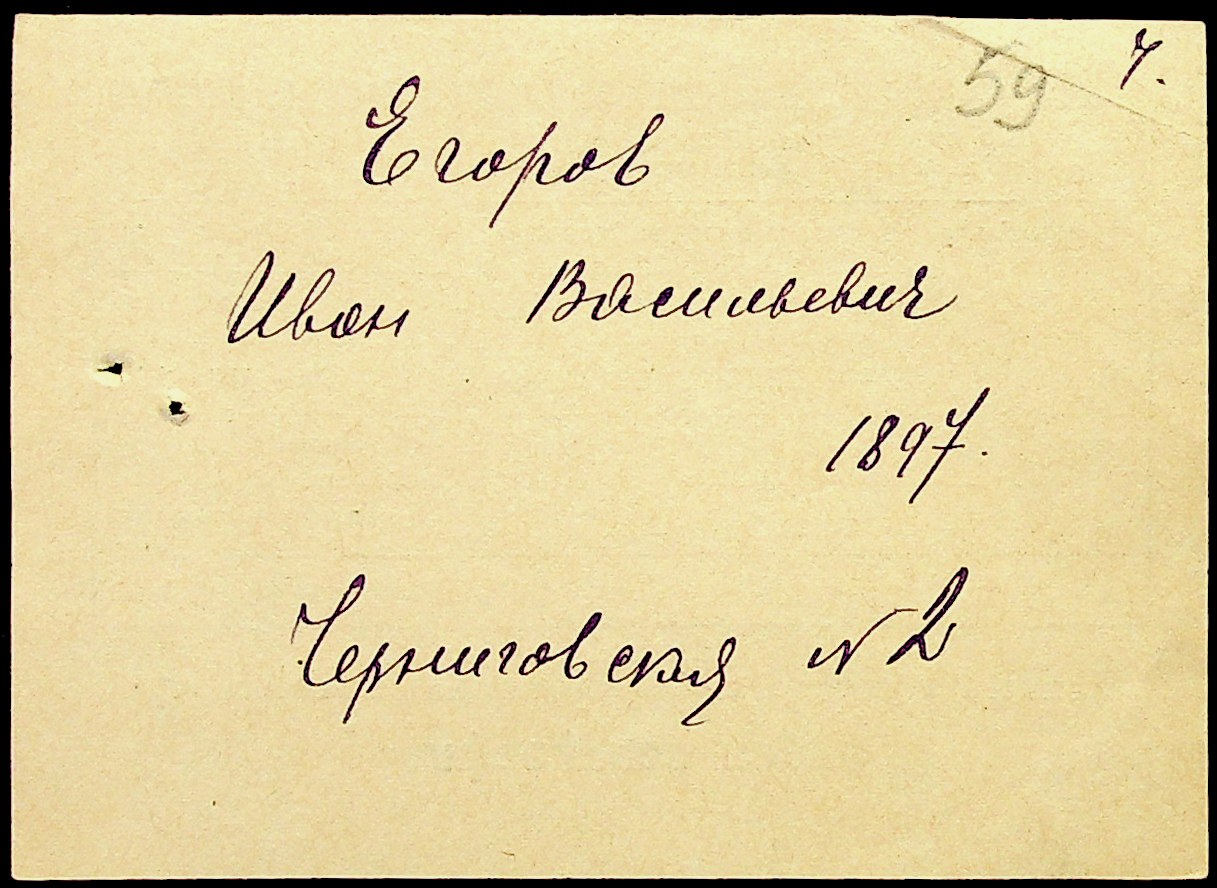 59 7.
Егоров
Иван Васильевич
1897.
Черниговская N 2